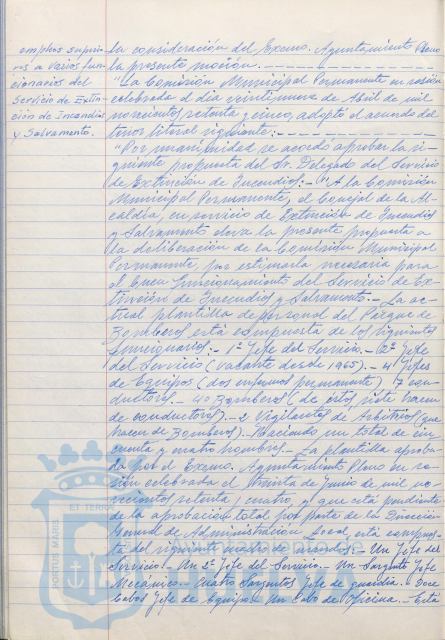 empleos superio-
res a varios fun-
cionarios del
Servicio de Extin-
ción de Incendios
y Salvamento.
la consideración del Excmo. Ayuntamiento Pleno
la presente moción.
"La Comisión Municipal Permanente en sesión
celebrada el día veintinueve de Abril de mil
novecientos setenta y cinco, adoptó el acuerdo del
tenor literal siguiente:
"Por unanimidad se acordó aprobar la si-
guiente propuesta del Sr. Delegado del Servicio
de Extinción de Incendios:- "A la Comisión
Municipal Permanente, el Concejal de la Al-
caldía, en servicio de Extinción de Incendios
y Salvamento eleva la presente propuesta a
la deliberación de la Comisión Municipal
Permanente, por estimarla necesaria para
el buen funcionamiento del Servicio de Ex-
tinción de Incendios y Salvamento.- La ac-
tual plantilla de personal del Parque de
Bomberos está compuesta de los siguientes
funcionarios:- 1º Jefe del Servicio.- 2º Jefe
del Servicio (vacante desde 1965).- 4 Jefes
de Equipos (dos enfermos permanente) 7 con-
ductores.- 40 Bomberos (de éstos, siete hacen
de conductores).- 2 Vigilantes de Arbitrios (que
hacen de Bomberos).- Haciendo un total de cin-
cuenta y cuatro hombres.- La plantilla aproba-
da por el Excmo. Ayuntamiento Pleno en se-
sión celebrada el treinta de Junio de mil no-
vecientos setenta y cuatro, y que está pendiente
de la aprobación total por parte de la Dirección
General de Administración Local, está compues-
ta del siguiente cuadro de mandos:- Un Jefe del
Servicio.- Un 2º Jefe del Servicio.- Un Sargento Jefe
Mecánico.- Cuatro Sargentos Jefe de guardia.- Doce
Cabos Jefe de Equipo.- Un Cabo de Oficina.- Está
PORTUS MARIS
ET TERRAE